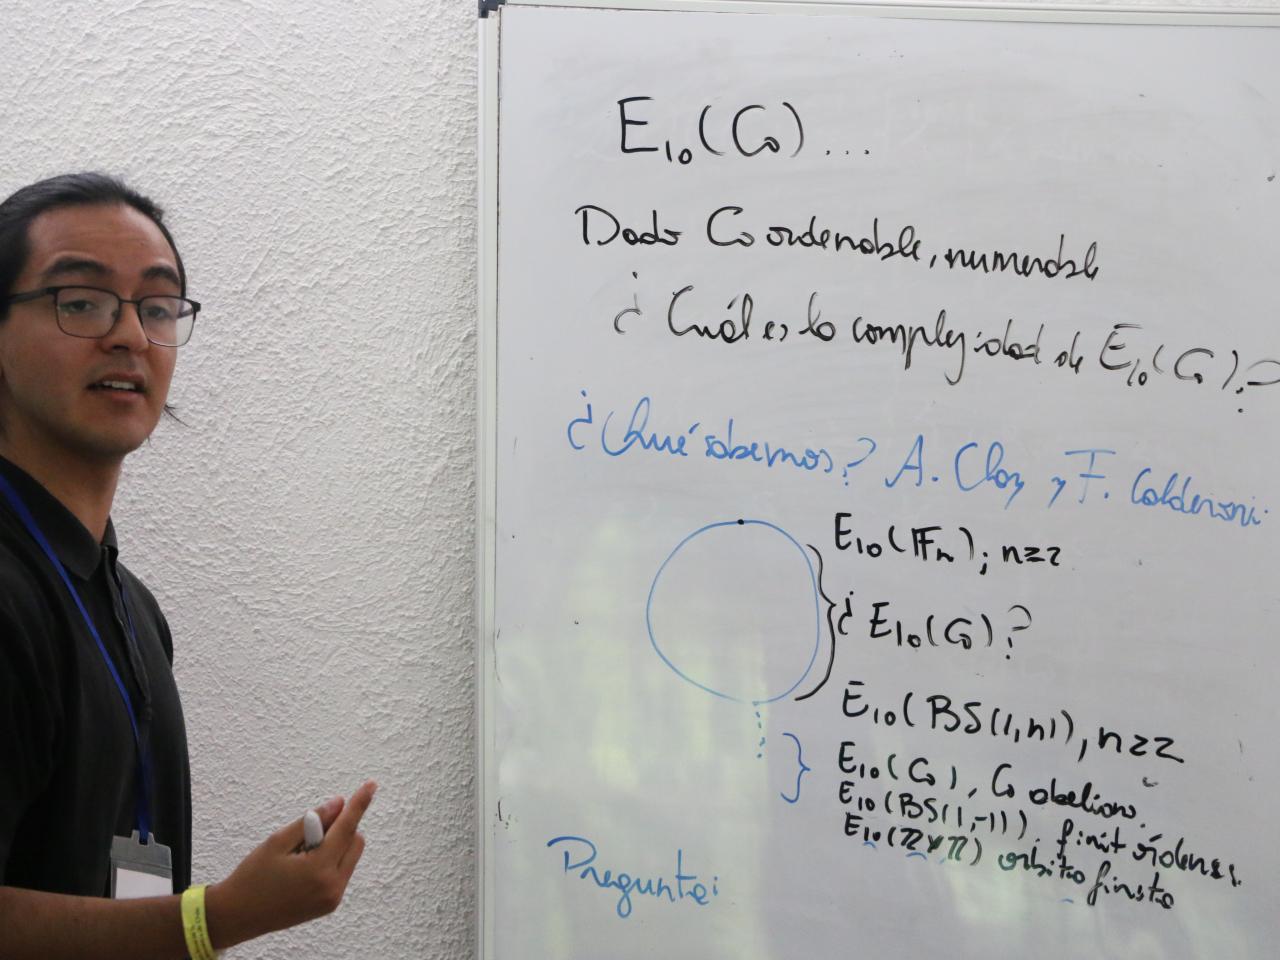 E_lo(G) ...
Dado G ordenable, numerable
¿Cuál es la complejidad de E_lo(G)?
¿Qué sabemos? A. Clay y F. Calderoni
E_lo(𝔽_n); n≥2
¿E_lo(G)?
E_lo(BS(1,n)), n≥2
E_lo(G), G abeliano.
E_lo(BS(1,-1)). finit órdenes.
E_lo(ℤ⋊ℤ) orbita finita
Pregunta: